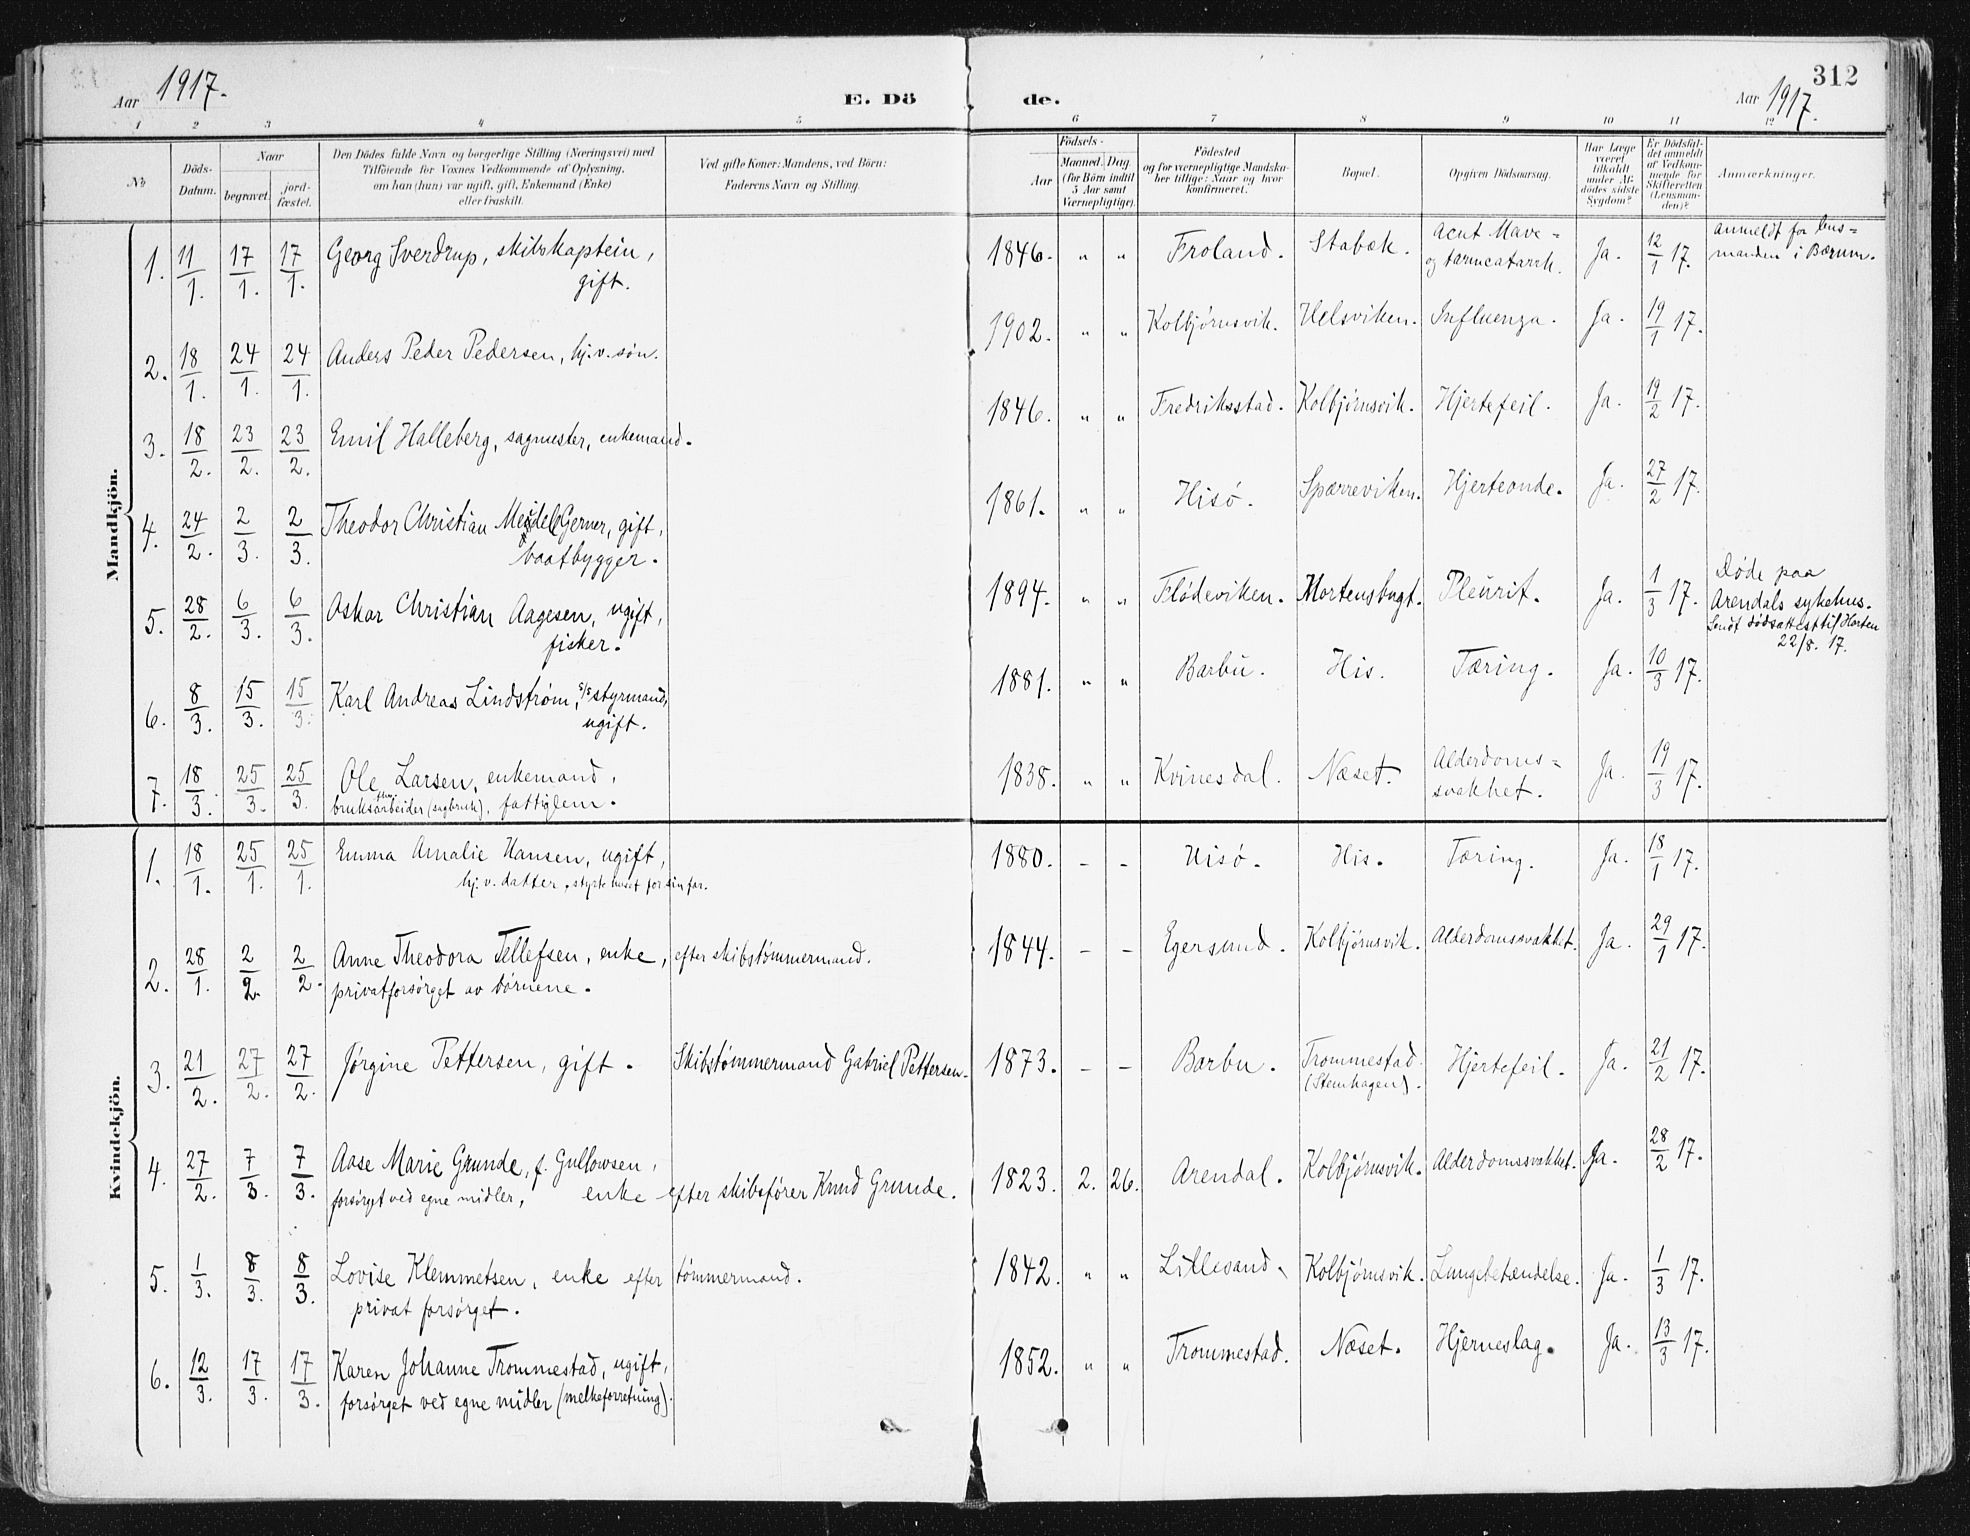 312
Aar 1917.
E. Döde.
Aar 1917.
1 2 3 4 5 6 7 8 9 10 11 12
No
Döds-
Datum.
Naar
begravet.
jord-
fæstet.
Den Dödes fulde Navn og borgerlige Stilling (Næringsvei) med
Tilföiende for Voxnes Vedkommende af Oplysning,
om han (hun) var ugift, gift, Enkemand (Enke)
eller fraskilt.
Ved gifte Koner: Mandens, ved Börn:
Faderens Navn og Stilling.
Födsels-
Aar
Maaned. Dag.
(for Börn indtil
5 Aar samt
Værnepligtige).
Födested
og for værnepligtige Mandska-
ber tillige: Naar og hvor
konfirmeret.
Bopæl.
Opgiven Dödsaarsag.
Har Læge
været
tilkaldt
under Af-
dödes sidste
Sygdom?
Er Dödsfal-
det anmeldt
af Vedkom-
mende for
Skifteretten
(Lensman-
den)?
Anmærkninger.
Mandkjön.
1. 11/1. 17/1. 17/1. Georg Sverdrup, skibskaptein, gift. 1846. " " Froland. Stabæk. Acut Mave- og tarmcatarrh. Ja. 12/1 17. Anmeldt for lens-
manden i Bærum.
2. 18/1. 24/1. 24/1. Anders Peder Pedersen, hj.v. søn. 1902. " " Kolbjørnsvik. Helsviken. Influenza. Ja. 19/1 17.
3. 18/2. 23/2. 23/2. Emil Halleberg, sagmester, enkemand. 1846. " " Fredriksstad. Kolbjørnsvik. Hjertefeil. Ja. 19/2 17.
4. 24/2. 2/3. 2/3. Theodor Christian Meidel Gerner, gift, baatbygger. 1861. " " Hisø. Spærreviken. Hjerteonde. Ja. 27/2 17.
5. 28/2. 6/3. 6/3. Oskar Christian Aagesen, ugift, fisker. 1894. " " Flødeviken. Mortensbugt. Pleurit. Ja. 1/3 17. Døde paa
Arendals sykehus.
Sendt dødsattest til Horten
22/8. 17.
6. 8/3. 15/3. 15/3. Karl Andreas Lindstrøm, s/s styrmand, ugift. 1881. " " Barbu. His. Tæring. Ja. 10/3 17.
7. 18/3. 25/3. 25/3. Ole Larsen, enkemand,
bruksarbeider (sagbruk), fattiglem. 1838. " " Kvinesdal. Næset. Alderdoms-
svakhet. Ja. 19/3 17.
Kvindekjön.
1. 18/1. 25/1. 25/1. Emma Amalie Hansen, ugift,
hj.v. datter, styrte huset for sin far. 1880. - - Hisø. His. Tæring. Ja. 18/1 17.
2. 28/1. 2/2. 2/2. Anne Theodora Tellefsen, enke, efter skibstømmermand.
privatforsørget av børnene. 1844. - - Egersund. Kolbjørnsvik. Alderdomssvakhet. Ja. 29/1 17.
3. 21/2. 27/2. 27/2. Jørgine Pettersen, gift. Skibstømmermand Gabriel Pettersen. 1873. - - Barbu. Trommestad
(Stenhagen). Hjertefeil. Ja. 21/2 17.
4. 27/2. 7/3. 7/3. Aase Marie Grunde, f. Gullowsen,
forsørget ved egne midler, enke efter skibsfører Knud Grunde. 1823. 2. 26. Arendal. Kolbjørnsvik. Alderdomssvakhet. Ja. 28/2 17.
5. 1/3. 8/3. 8/3. Lovise Klemmetsen, enke efter tømmermand.
privat forsørget. 1842. " " Lillesand. Kolbjørnsvik. Lungebetændelse. Ja. 1/3 17.
6. 12/3. 17/3. 17/3. Karen Johanne Trommestad, ugift,
forsørget ved egne midler (melkeforretning). 1852. " " Trommestad. Næset. Hjerneslag. Ja. 13/3 17.